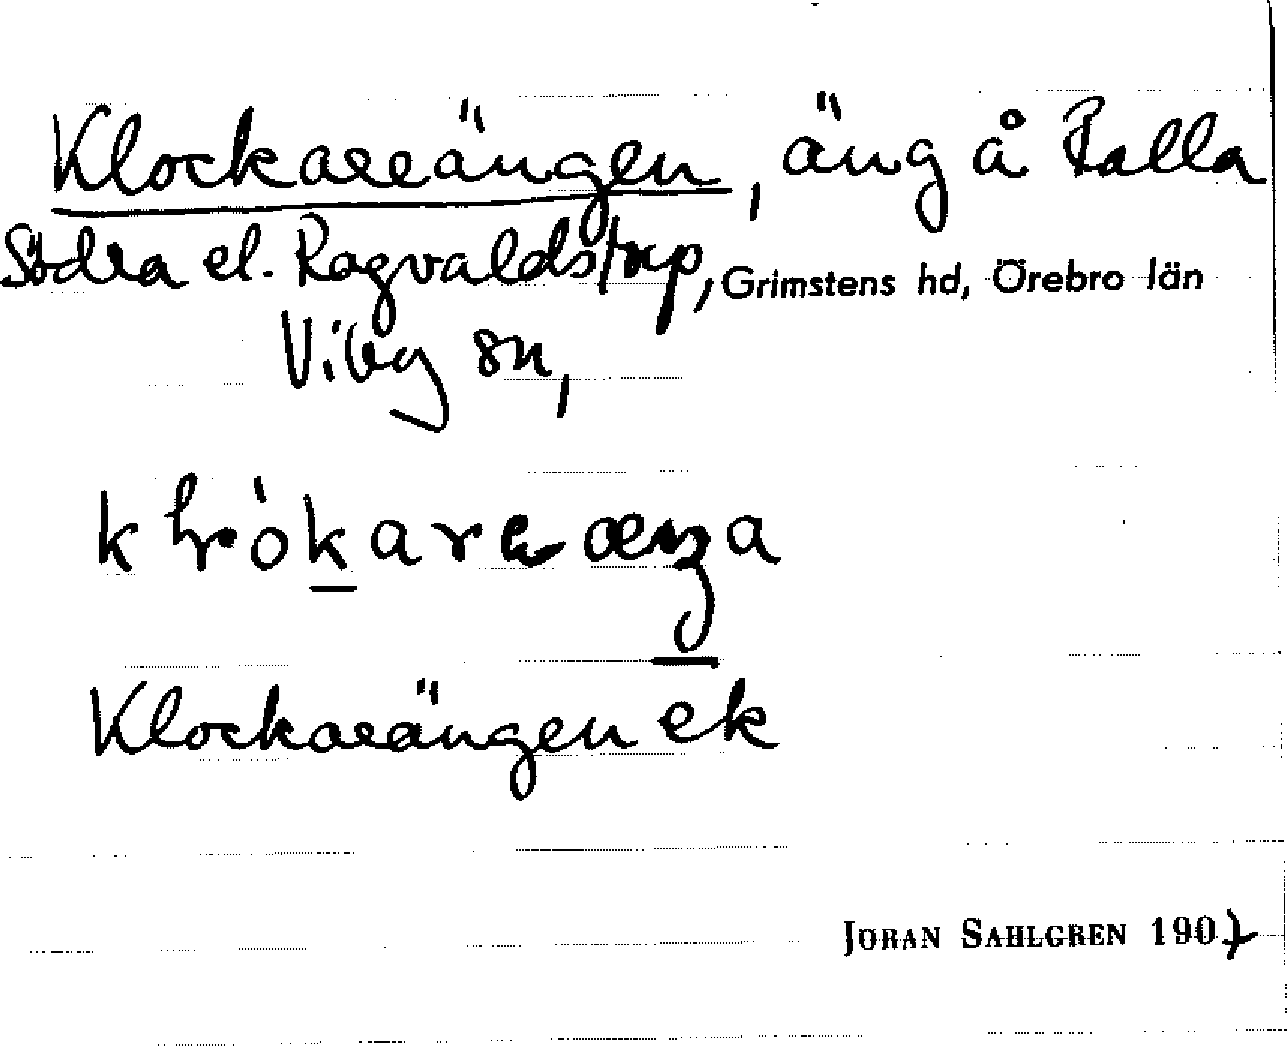 Klockareängen, äng å Ralla
Södra el. Ragvaldstorp, Grimstens hd, Örebro län
Viby sn,
Klockareängen ek
JÖRAN SAHLGREN 1907